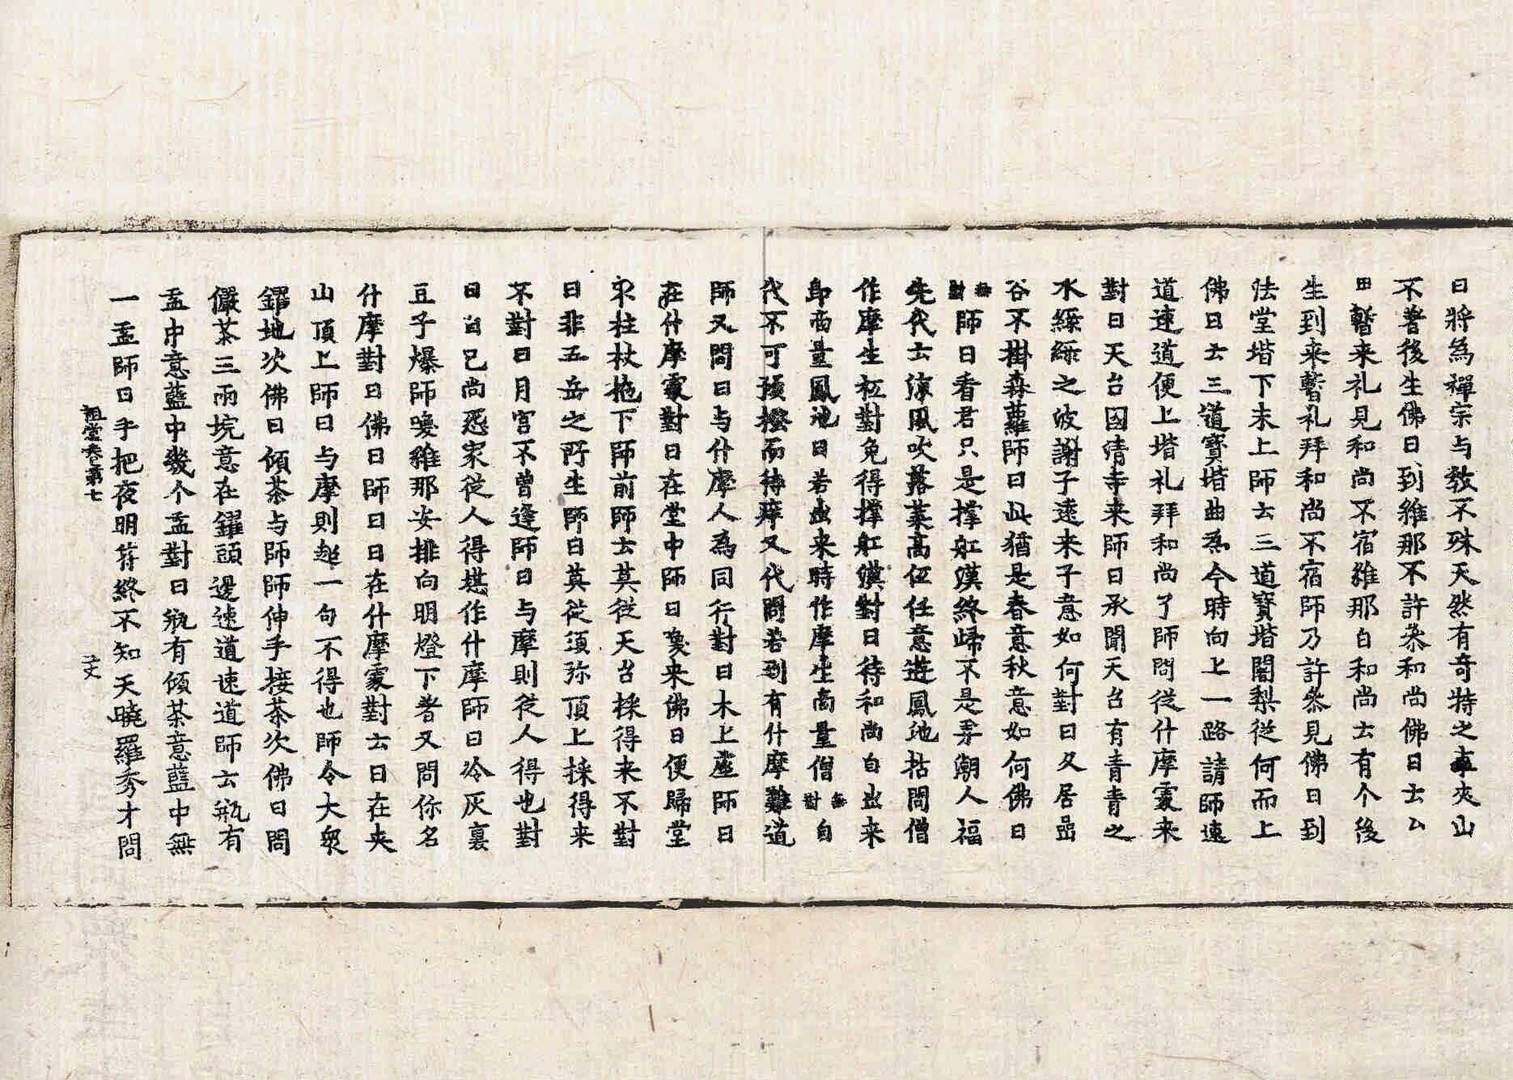 曰將為禪宗与教不殊天然有奇特之事夾山
不著後生佛日到維那不許叅和尚佛日云厶
甲暫來礼見和尚不宿維那白和尚云有个後
生到来暫礼拜和尚不宿師乃許叅見佛日到
法堂堦下未上師云三道寶堦闍梨從何而上
佛日云三道寶堦曲為今時向上一路請師速
道速道便上堦礼拜和尚了師問從什摩處来
對曰天台國清寺来師曰承聞天台有青青之
水綠綠之波謝子遠来子意如何對曰久居嵒
谷不掛森蘿師曰此猶是春意秋意如何佛日
無對師曰看君只是撑舡漢終歸不是弄潮人福
先代云凉風吹落葉高低任意遊鳳池拈問僧
作摩生秪對免得撑舡漢對曰待和尚自出来
即商量鳳池曰若出来時作摩生商量僧無對自
代不可預搔而待痒又代問若到有什摩難道
師又問曰与什摩人為同行對曰木上座師曰
在什摩處對曰在堂中師曰喚来佛日便歸堂
取柱杖拋下師前師云莫從天台採得来不對
曰非五岳之所生師曰莫從須弥頂上採得来
不對曰月宮不曾逢師曰与摩則從人得也對
曰自己尚怨家從人得堪作什摩師曰冷灰裏
豆子爆師喚維那安排向明燈下著又問你名
什摩對曰佛日師曰日在什摩處對云日在夾
山頂上師曰与摩則超一句不得也師令大衆
钁地次佛日傾茶与師師伸手接茶次佛日問
儼茶三兩垸意在钁頭邊速道速道師云瓶有
盂中意藍中幾个盂對曰瓶有傾茶意藍中無
一盂師曰手把夜明符終不知天曉羅秀才問
祖堂卷第七 文